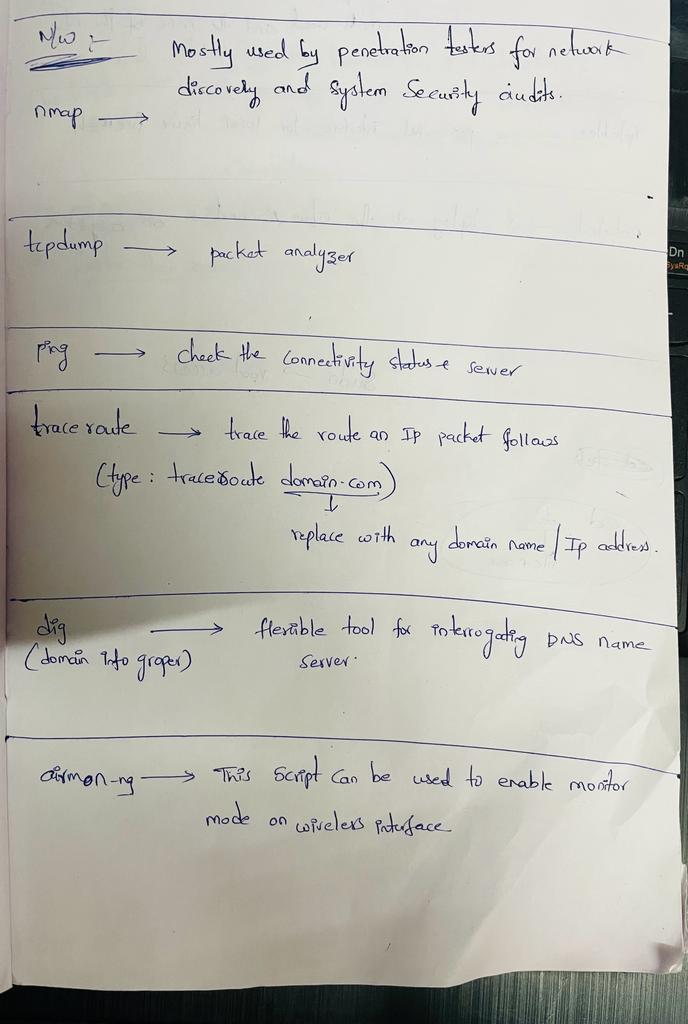 N/W :-
Mostly used by penetration testers for network
discovery and System Security audits.
nmap →
tcpdump → packet analyzer
ping → check the connectivity status & server
trace route → trace the route an IP packet follows
(type : traceroute domain.com)
↓
replace with any domain name / Ip address.
dig → flexible tool for interrogating DNS name
(domain info groper) server.
airmon-ng → This Script can be used to enable monitor
mode on wireless interface
Dn
SysRq